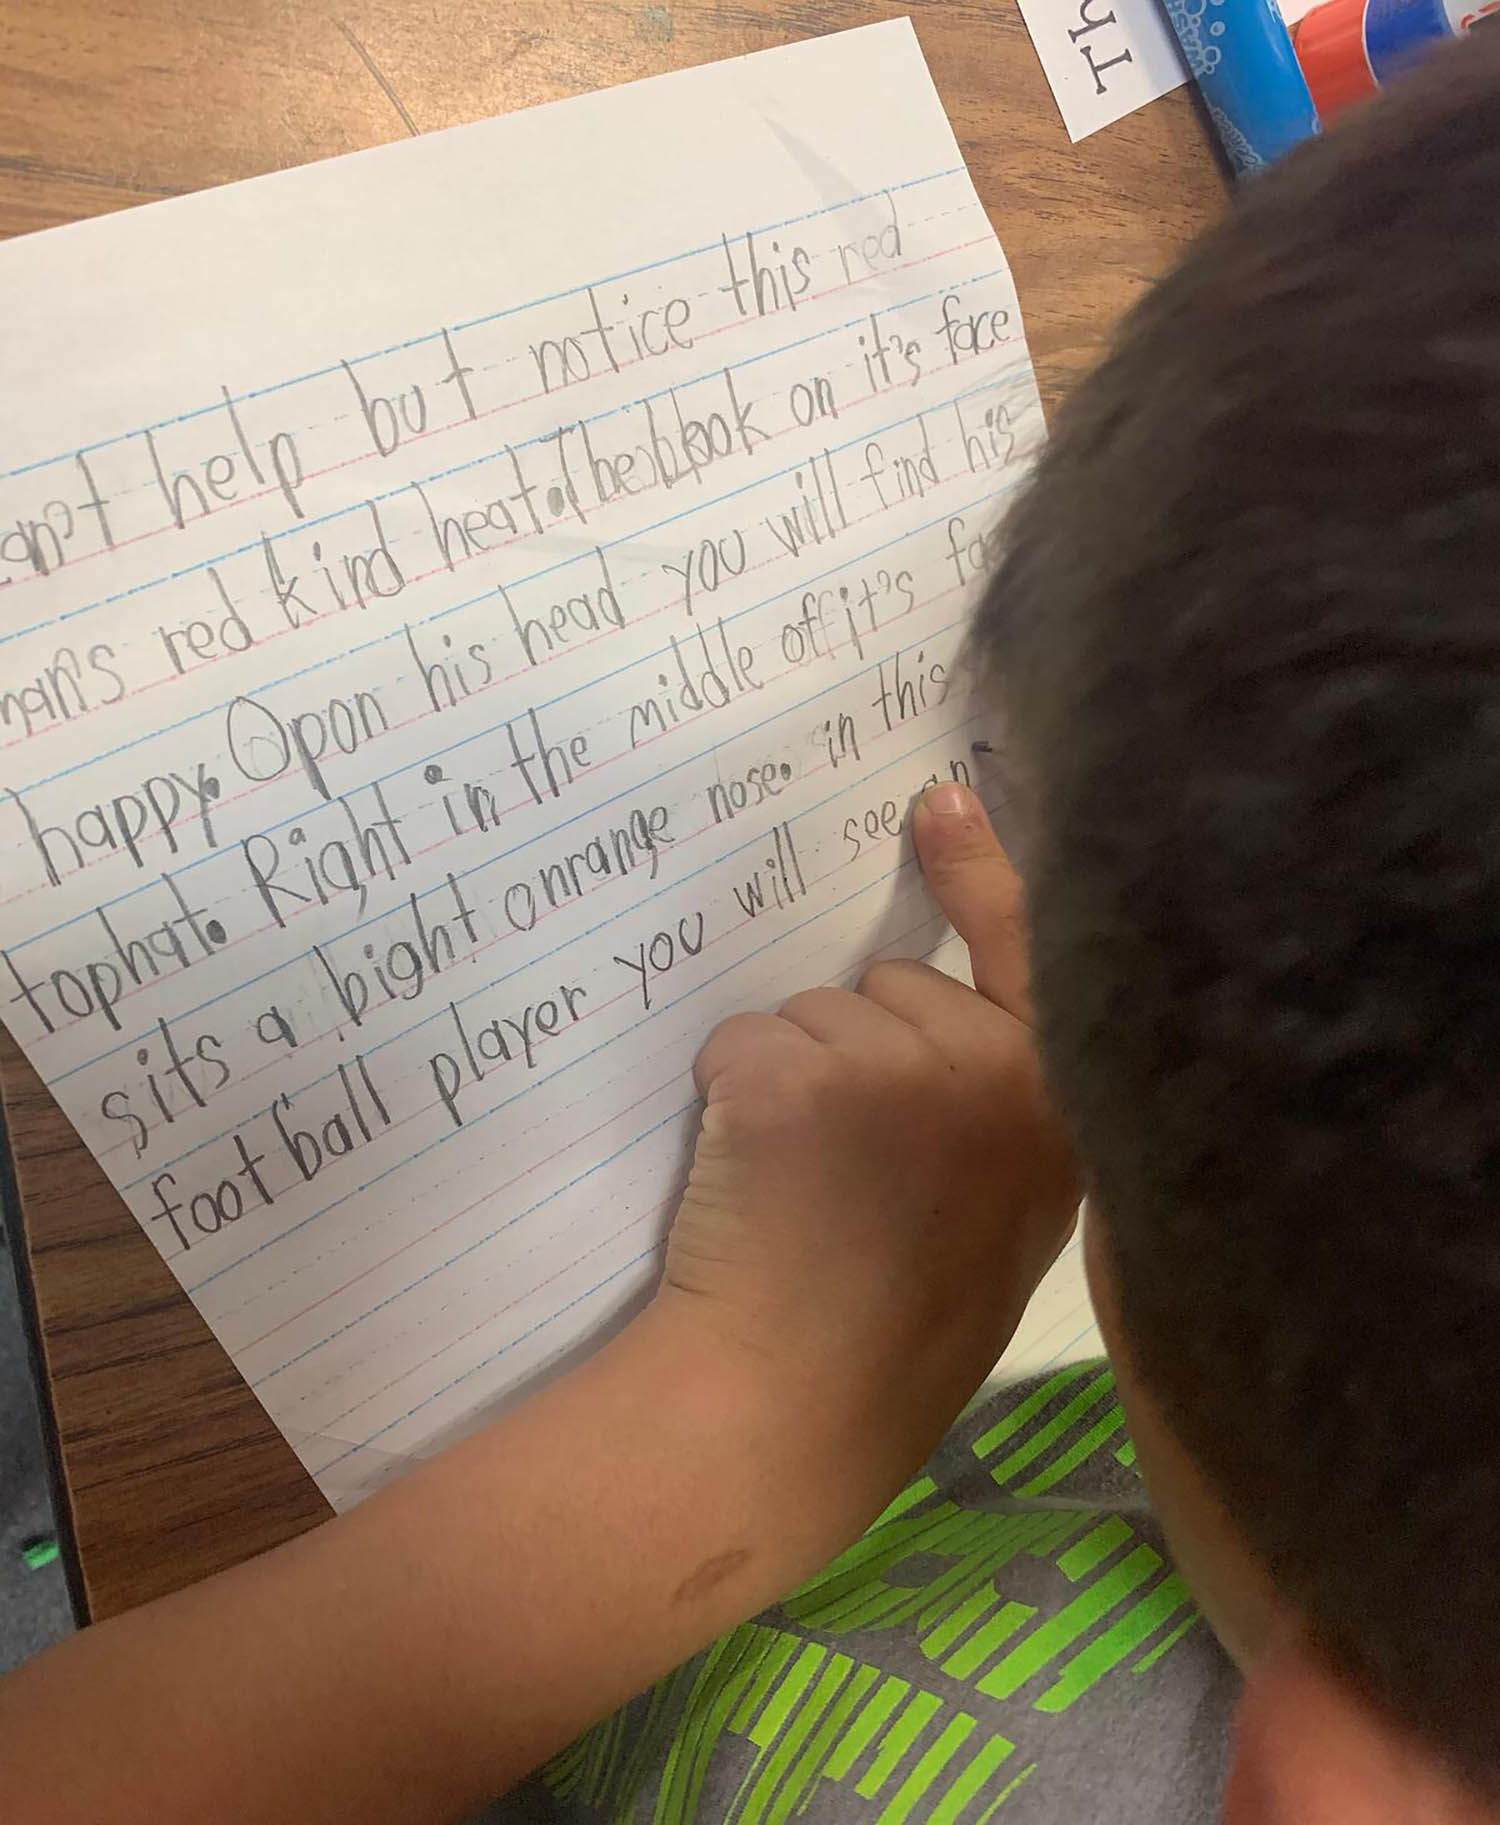 Th
an't help but notice this red
man's red kind heat. The look on it's face
happy. Opon his head you will find his
tophat. Right in the middle off it's fac
sits a bight onrange nose. in this
foot ball player you will see an